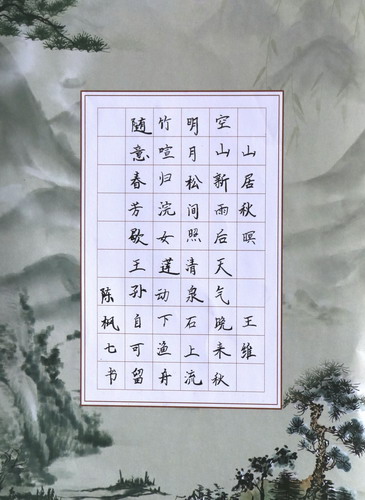 山居秋暝 王维
空山新雨后天气晚来秋
明月松间照清泉石上流
竹喧归浣女莲动下渔舟
随意春芳歇王孙自可留
陈枫七书